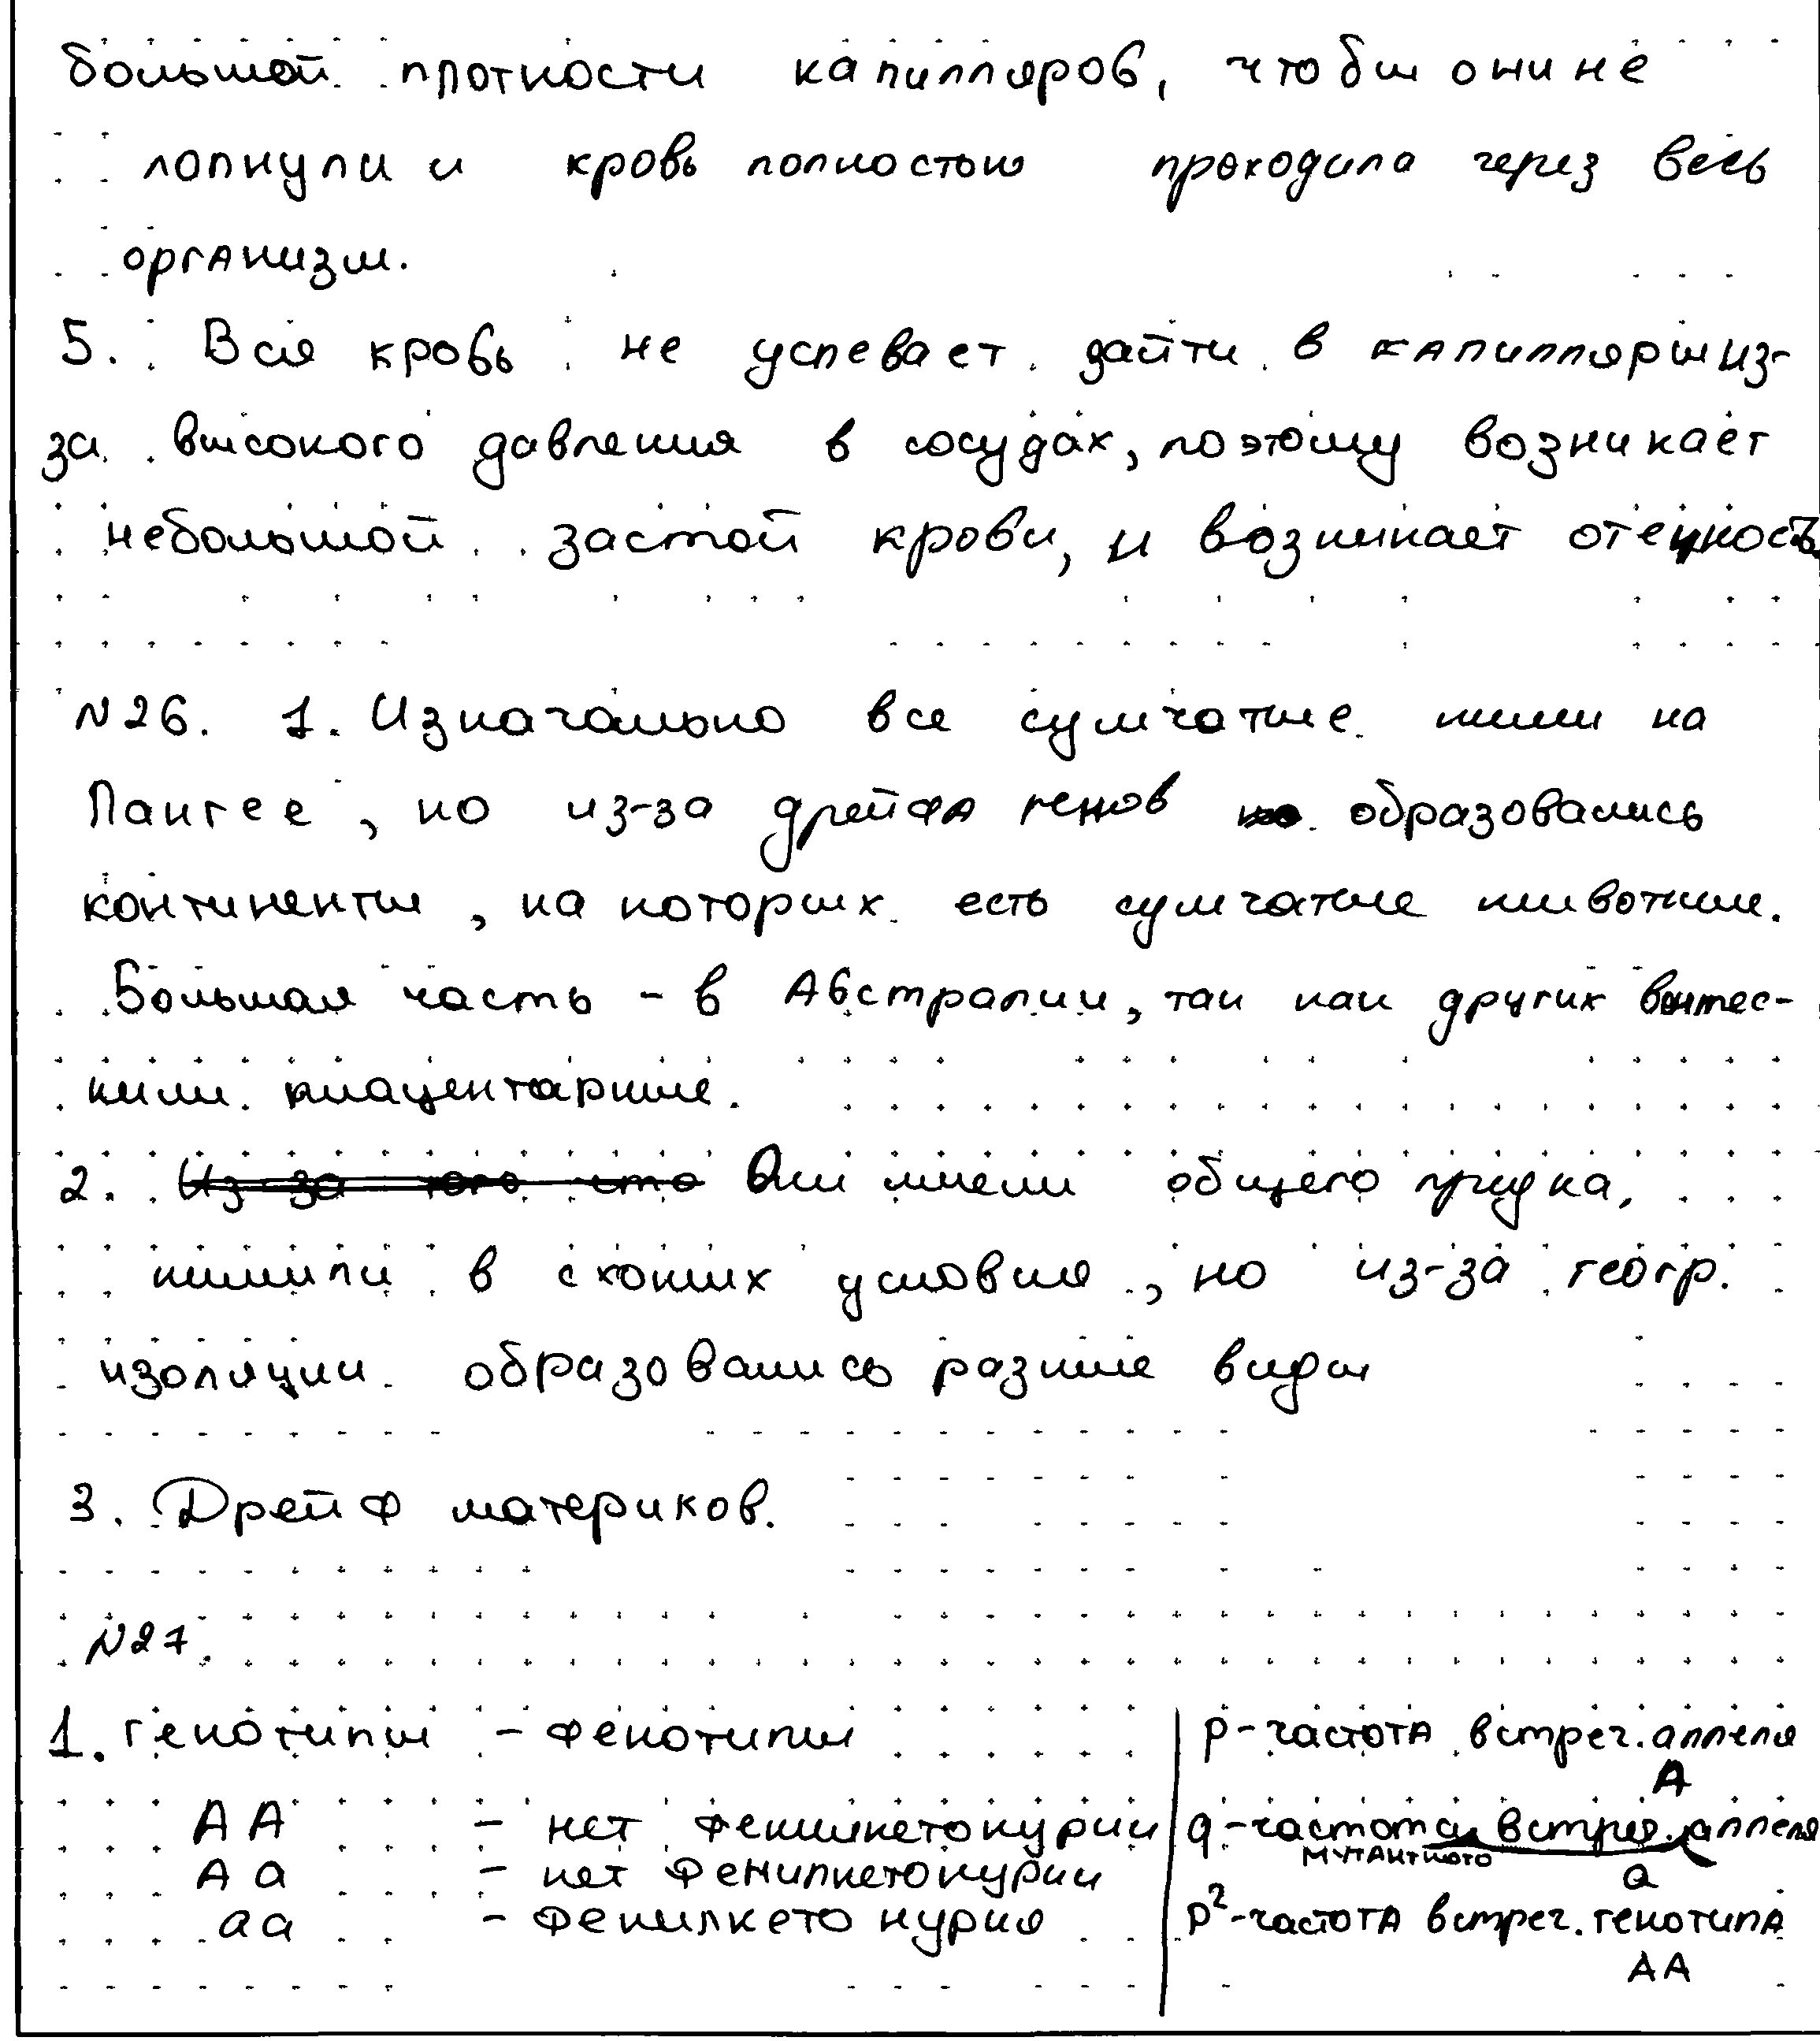 большой плотности капилляров, чтобы они не
лопнули и кровь полностью проходила через весь
организм.
5. Вся кровь не успевает зайти в капилляры из-
за высокого давления в сосудах, поэтому возникает
небольшой застой крови, и возникает отечность
№26. 1. Изначально все сумчатые жили на
Пангее, но из-за дрейфа генов образовались
континенты, на которых есть сумчатые животные.
Большая часть - в Австралии, так как других вытес-
нили плацентарные.
2. Из-за того что Они имели общего предка,
жили в схожих условия, но из-за геогр.
изоляции образовались разные виды
3. Дрейф материков.
№27.
1. генотипы - фенотипы
AA - нет фенилкетонурии
Aa - нет фенилкетонурии
aa - фенилкетонурия
p - частота встреч. аллеля
A
q - частота встреч. аллеля
мутантного a
p² - частота встреч. генотипа
AA